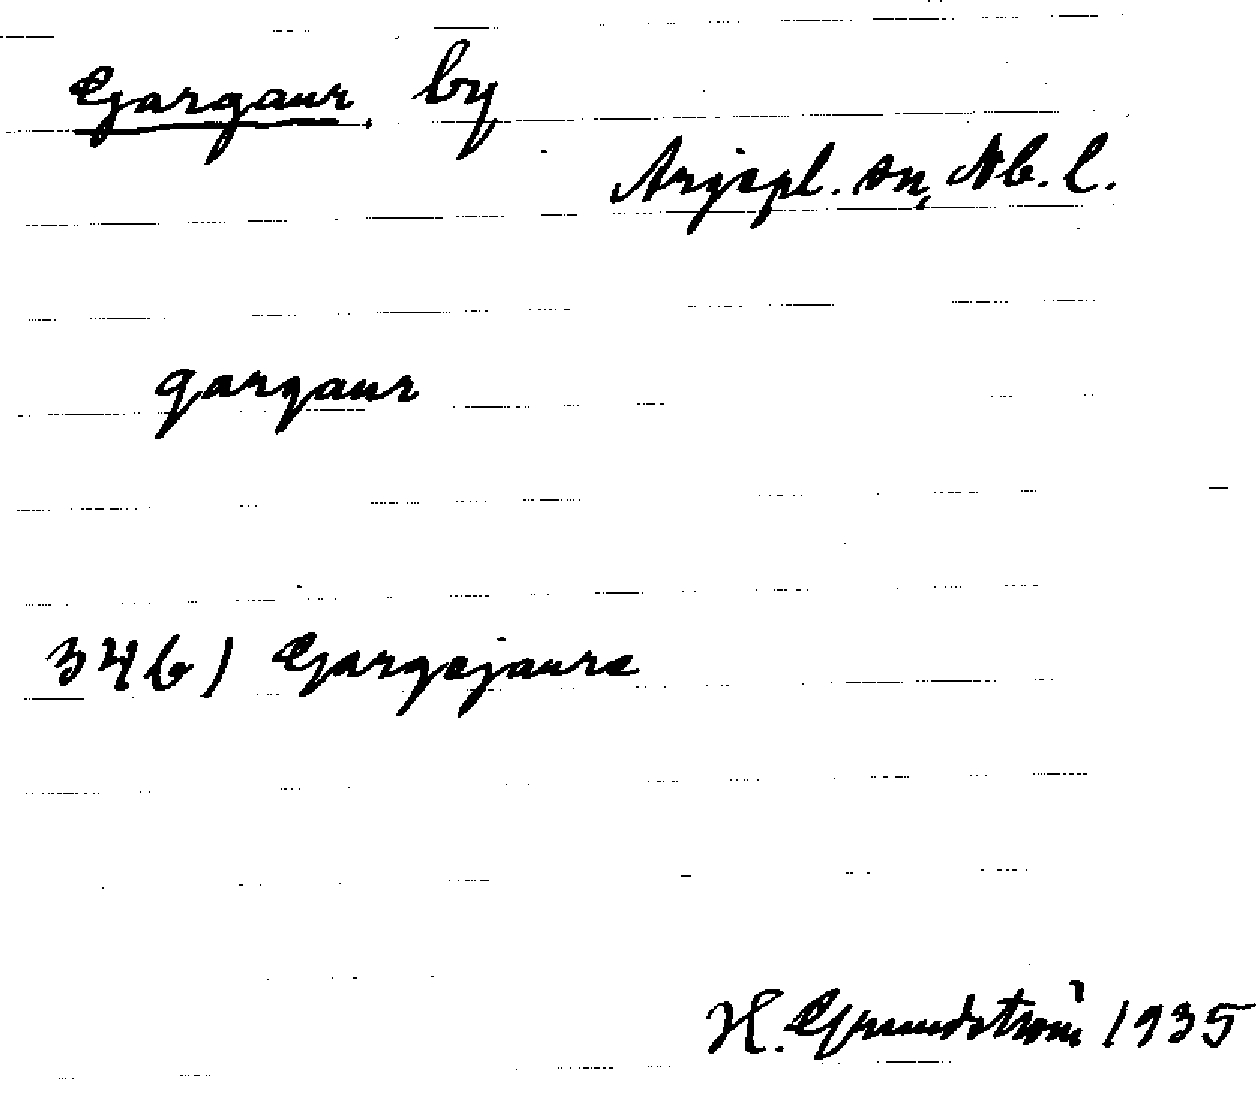 Gargaur, by
Arjepl. sn, Nb. l.
gargaur
346) Gargejaure
H. Grundström 1935